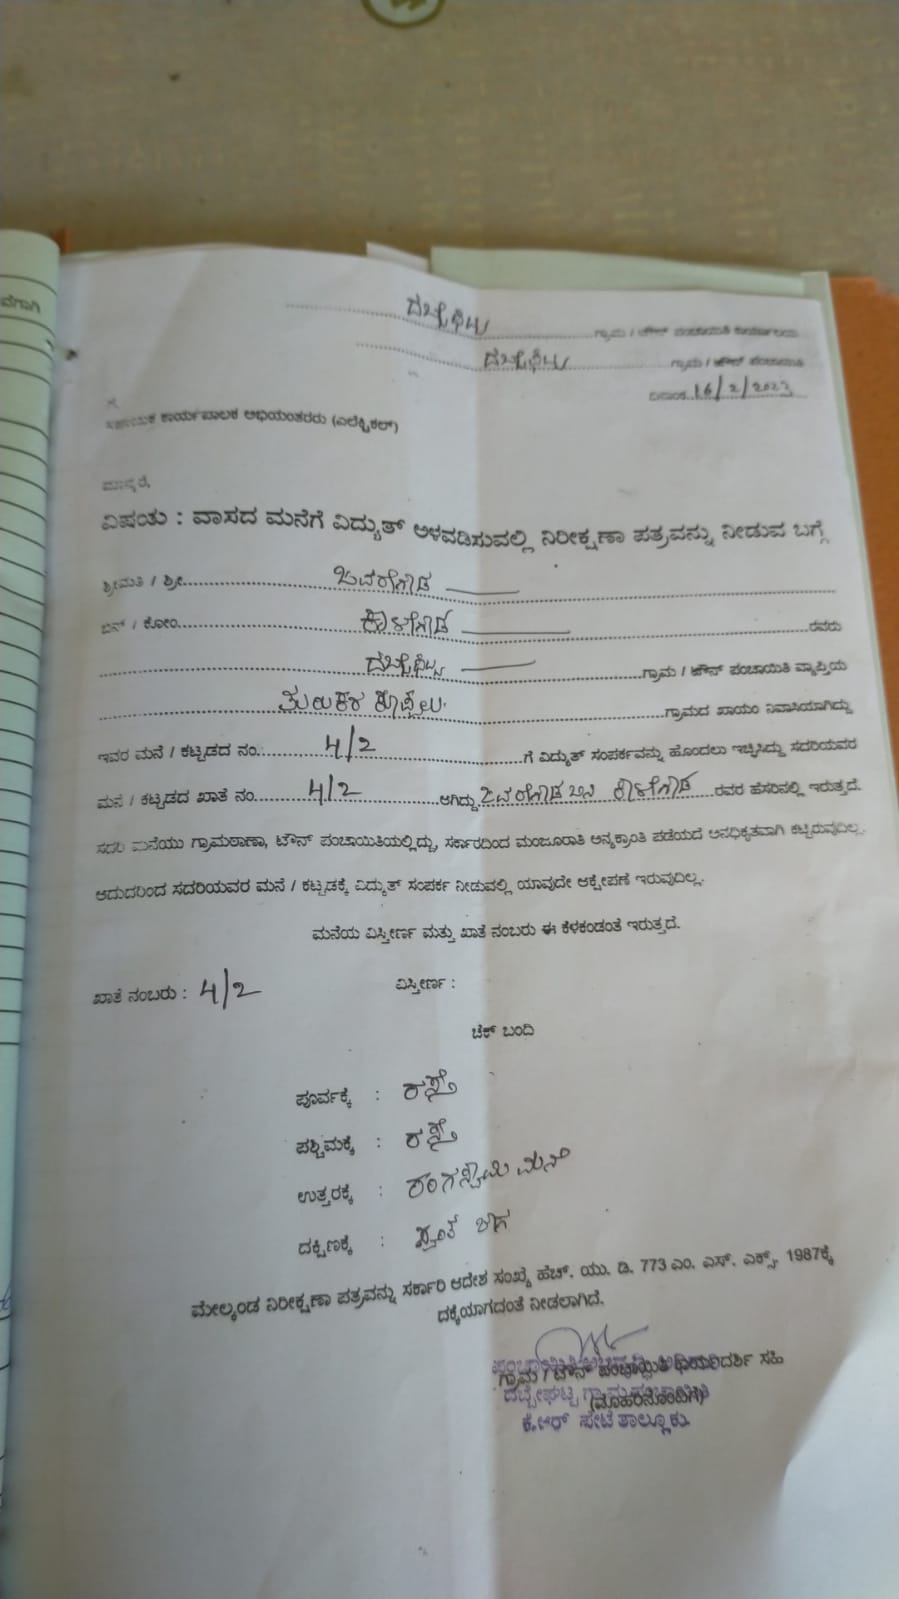 ವೆಗಾಗಿ
ದಬ್ಬೇಘಟ್ಟ ಗ್ರಾಮ / ಟೌನ್ ಪಂಚಾಯಿತಿ ಕಾರ್ಯಾಲಯ
ದಬ್ಬೇಘಟ್ಟ ಗ್ರಾಮ / ಟೌನ್ ಪಂಚಾಯಿತಿ
ದಿನಾಂಕ 16/2/2023
ಸಹಾಯಕ ಕಾರ್ಯಪಾಲಕ ಅಭಿಯಂತರರು (ಎಲೆಕ್ಟ್ರಿಕಲ್)
ಮಾನ್ಯರೆ,
ವಿಷಯ : ವಾಸದ ಮನೆಗೆ ವಿದ್ಯುತ್ ಅಳವಡಿಸುವಲ್ಲಿ ನಿರೀಕ್ಷಣಾ ಪತ್ರವನ್ನು ನೀಡುವ ಬಗ್ಗೆ
ಶ್ರೀಮತಿ / ಶ್ರೀ. ಜವರೇಗೌಡ
ಬಿನ್ / ಕೋಂ. ಕಾಳೇಗೌಡ ರವರು
ದಬ್ಬೇಘಟ್ಟ ಗ್ರಾಮ / ಟೌನ್ ಪಂಚಾಯಿತಿ ವ್ಯಾಪ್ತಿಯ
ಕೊಪ್ಪಲು ಗ್ರಾಮದ ಖಾಯಂ ನಿವಾಸಿಯಾಗಿದ್ದು
ಇವರ ಮನೆ / ಕಟ್ಟಡದ ನಂ. 4/2 ಗೆ ವಿದ್ಯುತ್ ಸಂಪರ್ಕವನ್ನು ಹೊಂದಲು ಇಚ್ಛಿಸಿದ್ದು ಸದರಿಯವರ
ಮನೆ / ಕಟ್ಟಡದ ಖಾತೆ ನಂ. 4/2 ಆಗಿದ್ದು ಜವರೇಗೌಡ ಬಿನ್ ಕಾಳೇಗೌಡ ರವರ ಹೆಸರಿನಲ್ಲಿ ಇರುತ್ತದೆ.
ಸದರಿ ಮನೆಯು ಗ್ರಾಮಠಾಣಾ, ಟೌನ್ ಪಂಚಾಯಿತಿಯಲ್ಲಿದ್ದು, ಸರ್ಕಾರದಿಂದ ಮಂಜೂರಾತಿ ಅನ್ಯಕ್ರಾಂತಿ ಪಡೆಯದೆ ಅನಧಿಕೃತವಾಗಿ ಕಟ್ಟಿರುವುದಿಲ್ಲ.
ಆದುದರಿಂದ ಸದರಿಯವರ ಮನೆ / ಕಟ್ಟಡಕ್ಕೆ ವಿದ್ಯುತ್ ಸಂಪರ್ಕ ನೀಡುವಲ್ಲಿ ಯಾವುದೇ ಆಕ್ಷೇಪಣೆ ಇರುವುದಿಲ್ಲ.
ಮನೆಯ ವಿಸ್ತೀರ್ಣ ಮತ್ತು ಖಾತೆ ನಂಬರು ಈ ಕೆಳಕಂಡಂತೆ ಇರುತ್ತದೆ.
ಖಾತೆ ನಂಬರು : 4/2 ವಿಸ್ತೀರ್ಣ :
ಚೆಕ್ ಬಂದಿ
ಪೂರ್ವಕ್ಕೆ : ರಸ್ತೆ
ಪಶ್ಚಿಮಕ್ಕೆ : ರಸ್ತೆ
ಉತ್ತರಕ್ಕೆ : ರಂಗಸ್ವಾಮಿ ಮನೆ
ದಕ್ಷಿಣಕ್ಕೆ : ಸ್ವಂತ ಜಾಗ
ಮೇಲ್ಕಂಡ ನಿರೀಕ್ಷಣಾ ಪತ್ರವನ್ನು ಸರ್ಕಾರಿ ಆದೇಶ ಸಂಖ್ಯೆ ಹೆಚ್. ಯು. ಡಿ. 773 ಎಂ. ಎಸ್. ಎಕ್ಸ್. 1987ಕ್ಕೆ
ದಕ್ಕೆಯಾಗದಂತೆ ನೀಡಲಾಗಿದೆ.
ಗ್ರಾಮ / ಟೌನ್ ಪಂಚಾಯಿತಿ ಕಾರ್ಯದರ್ಶಿ ಸಹಿ
(ಮೊಹರಿನೊಂದಿಗೆ)
ದಬ್ಬೇಘಟ್ಟ ಗ್ರಾಮ ಪಂಚಾಯಿತಿ
ಕೆ.ಆರ್ ಪೇಟೆ ತಾಲ್ಲೂಕು.